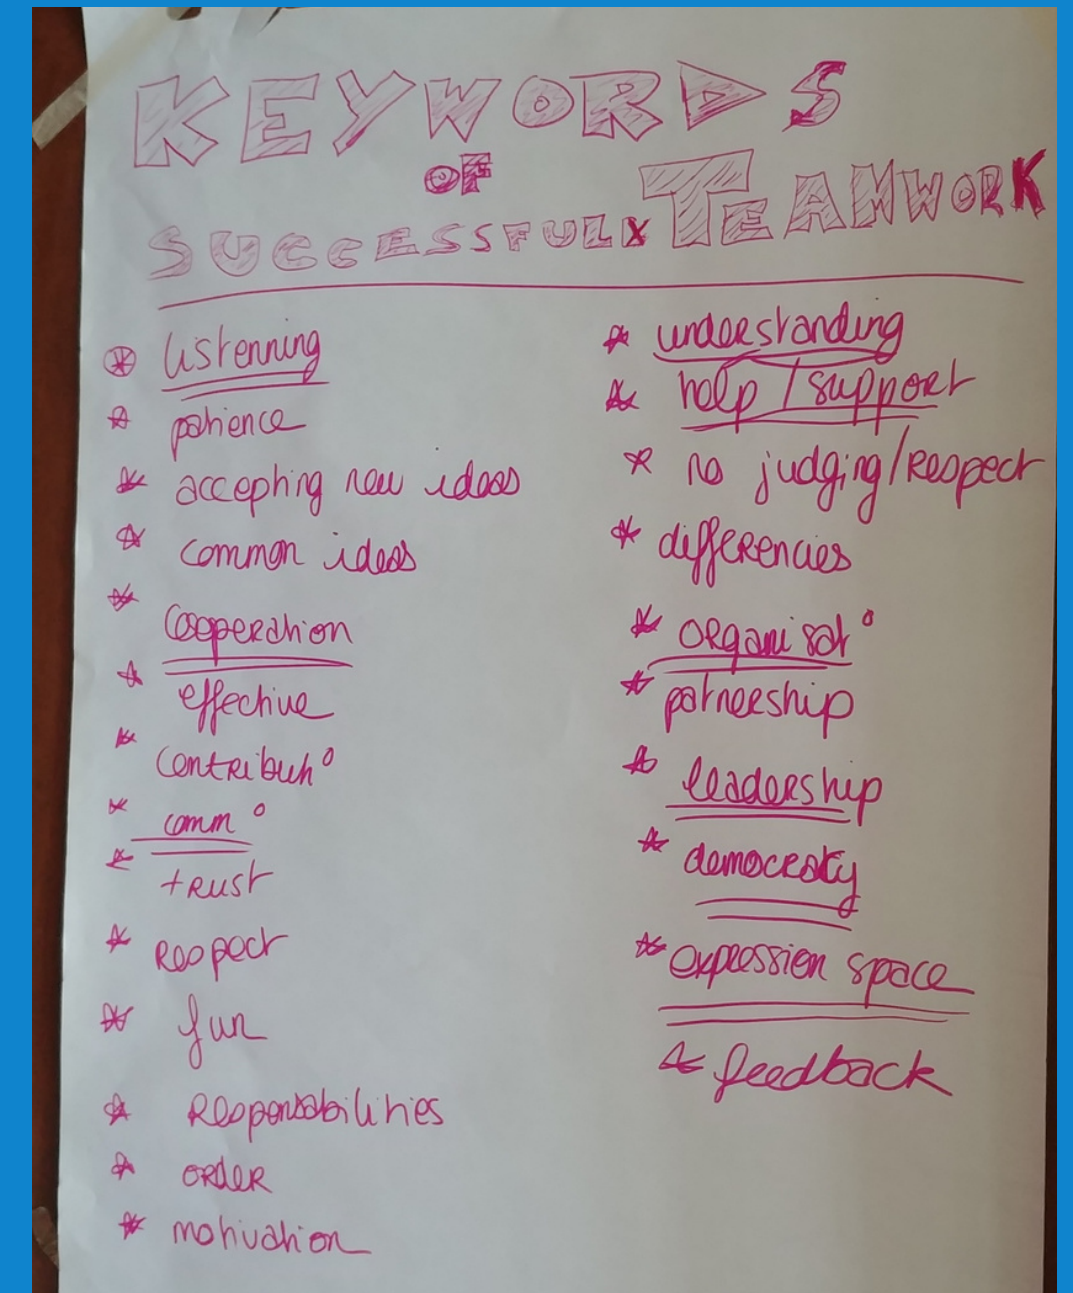 KEYWORDS
OF
SUCCESSFULX TEAMWORK
listenning
patience
accepting new ideas
common ideas
Cooperation
effective
contribut°
comm°
trust
Respect
fun
Responsabilities
order
motivation
understanding
help / support
no judging/Respect
differencies
organisat°
patnership
leadership
democraty
expression space
feedback